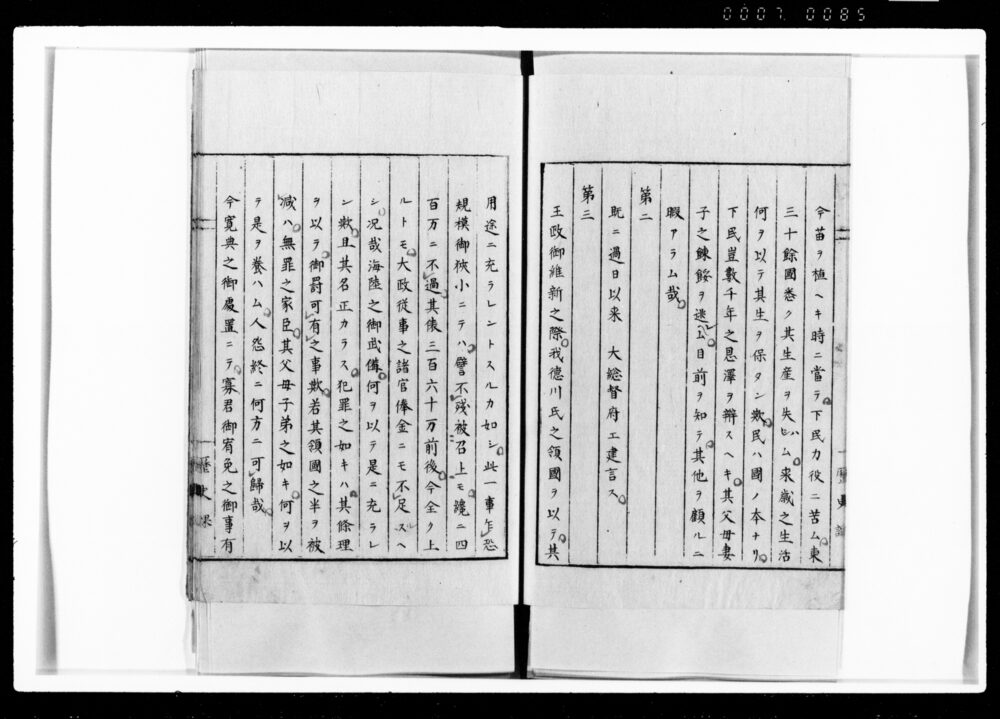 0007 0085
今苗ヲ植ヘキ時ニ當テ下民力役ニ苦ム東
三十餘國悉ク其生産ヲ失ハム来歳之生活
何ヲ以テ其生ヲ保タン歟民ハ國ノ本ナリ
下民豈數千年之恩澤ヲ辨スヘキ其父母妻
子之餗餒ヲ逃ム目前ヲ知テ其他ヲ顧ルニ
暇アラム哉
第二
既ニ過日以来 大総督府エ建言ス
第三
王政御維新之際我德川氏之領國ヲ以テ其
用途ニ充ラレントスルカ如シ此一事乍恐
規模御狭小ニテハ譬不残被召上モ纔ニ四
百万ニ不過其俵三百六十万前後今全ク上
ルトモ大政従事之諸官俸金ニモ不足スヘ
シ况哉海陸之御武備何ヲ以テ是ニ充ラレ
ン歟且其名正カラス犯罪之如キハ其條理
ヲ以テ御罰可有之事歟若其領國之半ヲ被
减ハ無罪之家臣其父母子弟之如キ何ヲ以
テ是ヲ養ハム人怨終ニ何方ニ可歸哉
今寛典之御處置ニテ寡君御宥免之御事有
歴史課